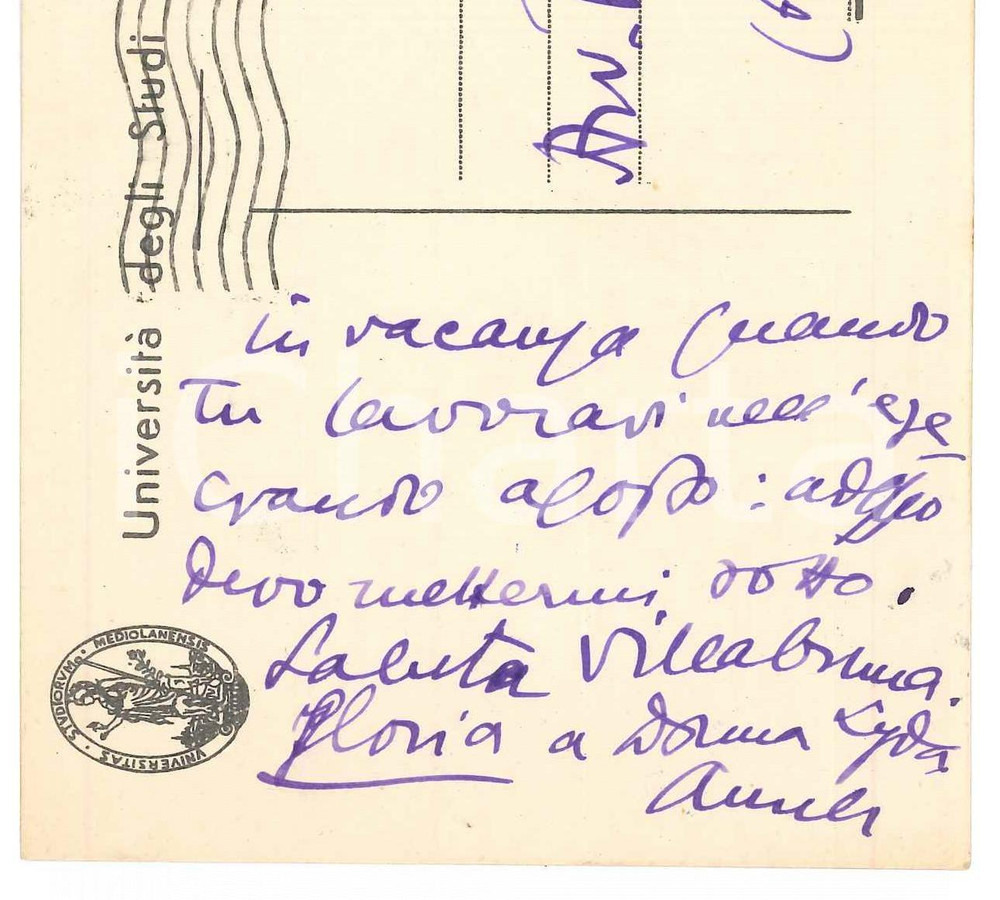 Università degli Studi
UNIVERSITAS · STVDIORVM · MEDIOLANENSIS
Avv.
in vacanza quando
Tu lavoravi nell'ese
crando agosto : adesso
devo mettermi sotto.
Saluta Villabruna.
Gloria a Donna Lyda
Charta